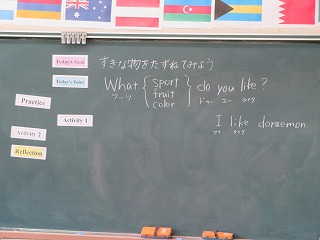 Today's Goal すきな物をたずねてみよう
Today's Point What { sport fruit color } do you like?
ワッツ ドゥー ユー ライク
Practice
Activity 1
I like doraemon
アイ ライク
Activity 2
Reflection